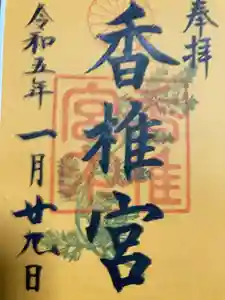 奉拝
香椎宮
令和五年
一月廿九日